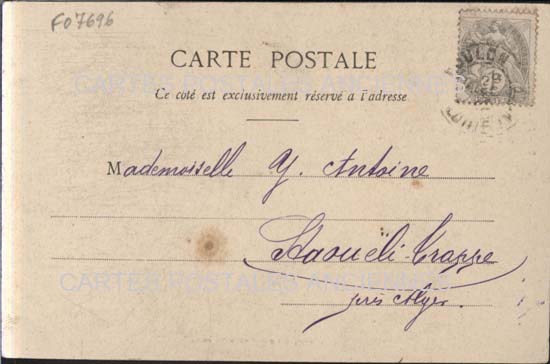 F07696
CARTE POSTALE
Ce côté est exclusivement réservé a l'adresse
Mademoiselle Y. Antoine
Staouëli-Trappe
près Alger.
CARTES POSTALES ANCIENNES
CARTES POSTALES ANCIENNES